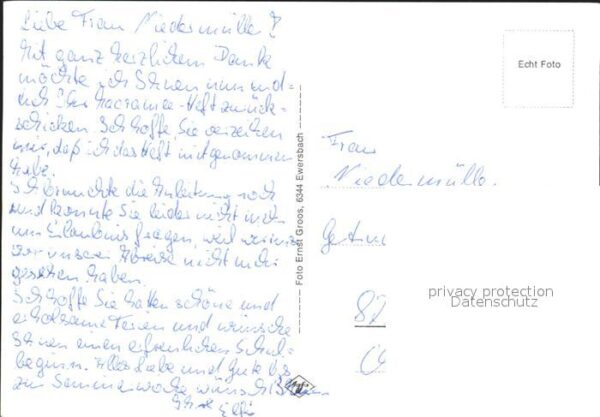 Liebe Frau Niedermüller!
Mit ganz herzlichem Danke
möchte ich Ihnen nun end-
lich Ihr Macramee-Heft zurück-
schicken. Ich hoffe, Sie verzeihen
mir, daß ich das Heft mitgenommen
habe.
Ich brauchte die Anleitung noch
und konnte Sie leider nicht mehr
um Erlaubnis fragen, weil wir uns
vor unserer Abreise nicht mehr
gesehen haben.
Ich hoffe Sie hatten schöne und
erholsame Ferien und wünsche
Ihnen einen erfreulichen Schul-
beginn. Alles Liebe und Gute bis
zur Seminarwoche wünscht Ihnen
Ihre
Foto Ernst Groos, 6344 Ewersbach
Echt Foto
Frau
Niedermülle
privacy protection
Datenschutz